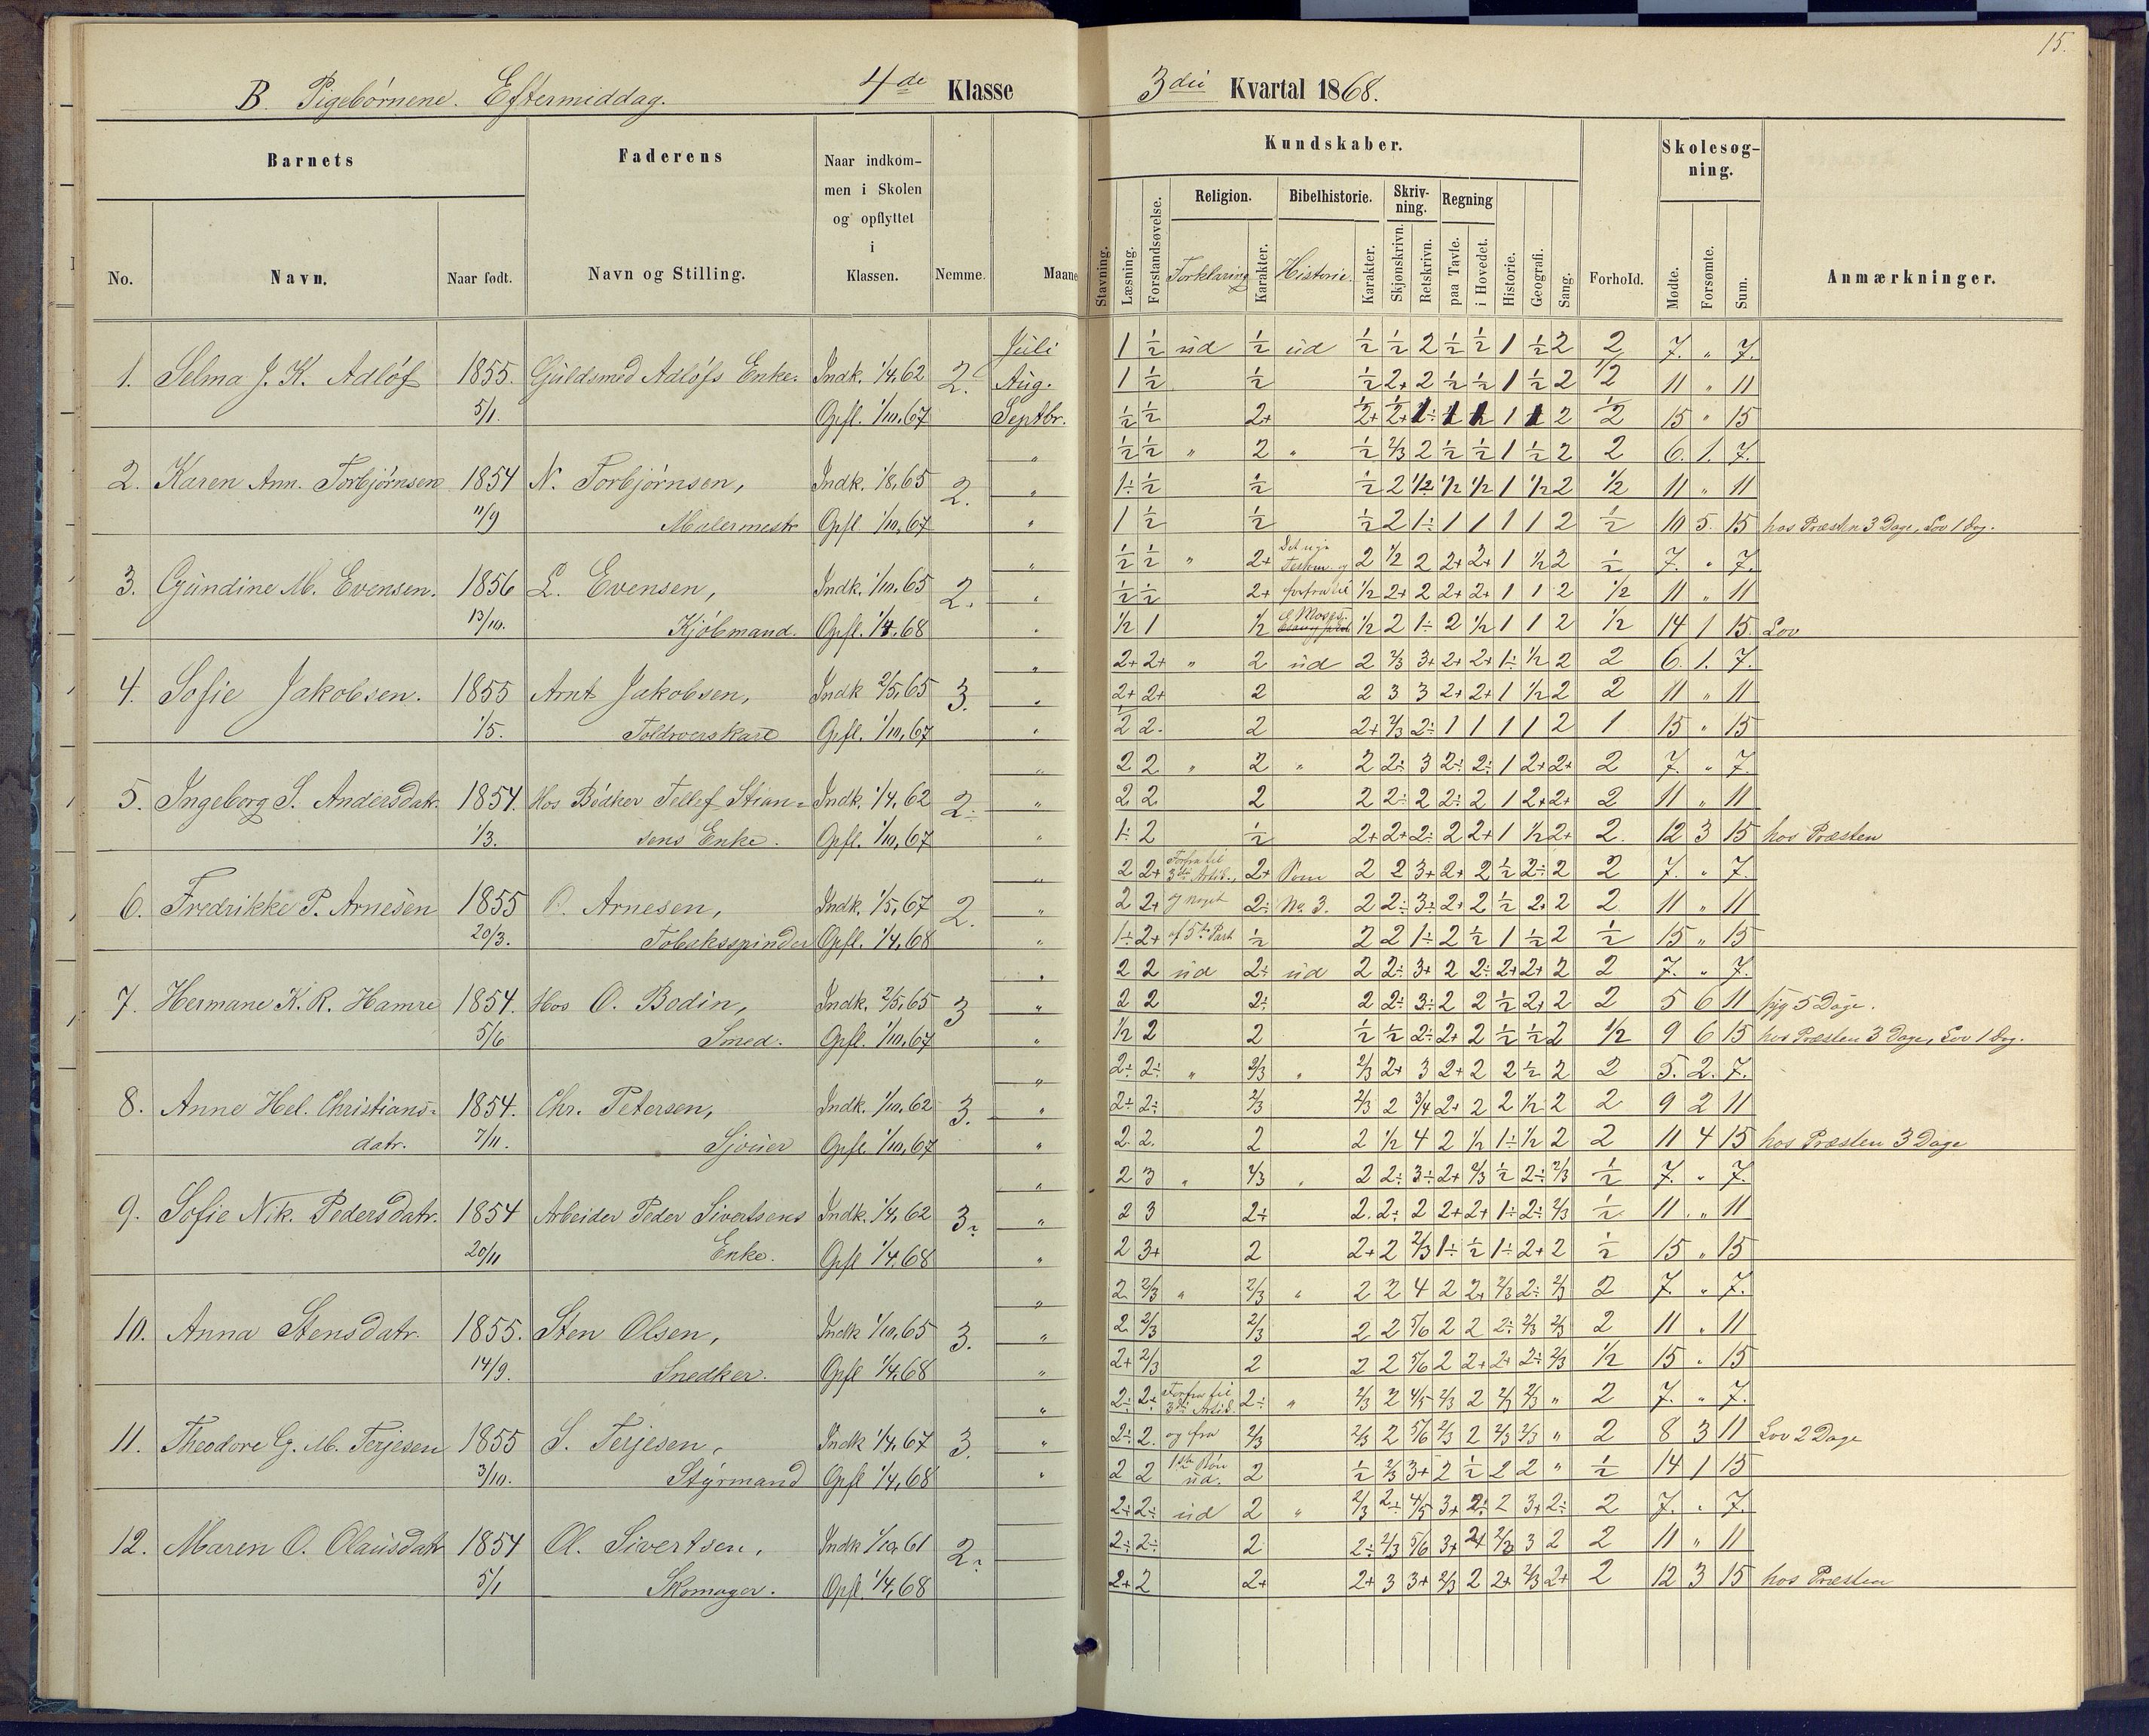 15.
B. Pigebørnene. Eftermiddag. 4de Klasse 3die Kvartal 1868.
Barnets Faderens Naar indkommen i Skolen og opflyttet i Klassen. Nemme. Maane
No. Navn. Naar født. Navn og Stilling.
Kundskaber. Forhold. Skolesøgning. Anmærkninger.
Stavning. Læsning. Forstandsøvelse. Religion. Forklaring Karakter. Bibelhistorie. Historie. Karakter. Skrivning. Skjønskrivn. Retskrivn. Regning paa Tavle. i Hovedet. Historie. Geografi. Sang. Mødte. Forsømte. Sum.
Juli 1 1/2 ud 1/2 ud 1/2 1/2 2 1/2 1/2 1 1/2 2 2 7. " 7.
1. Selma J. K. Adløf 1855. Guldsmed Adløfs Enke. Indk. 1/4,62 2. Aug. 1 1/2 1/2 1/2 2+ 2 1/2 1/2 1 1/2 2 1/2 11 " 11
5/1. Opfl. 1/10,67 Septbr. 1/2 1/2 2+ 1 2 1/2 15 " 15
" 1/2 1/2 " 2 " 1/2 2/3 2 1/2 1/2 1 1/2 2 2 6. 1. 7.
2. Karen Ann. Torbjørnsen 1854 N. Torbjørnsen, Indk. 1/8,65 2. " 1÷ 1/2 1/2 1/2 2 1/2 1/2 1/2 1 1/2 2 1/2 11 " 11
11/9 Malermestr Opfl. 1/10,67 " 1 1/2 1/2 1/2 2 1÷ 1 1 1 1 2 1/2 10 5. 15 hos Præsten 3 Dage, Lov 1 Dag.
" 1/2 1/2 " 2+ Det nye Testam. og 2 1/2 2 2+ 2+ 1 1/2 2 1/2 7. " 7.
3. Gundine M. Evensen. 1856 L. Evensen, Indk. 1/10,65 2. " 1/2 1/2 2+ forfra til 1/2 2+ 2 2+ 2+ 1 1 2 1/2 11 " 11
13/10. Kjøbmand. Opfl. 1/4.68 " 1/2 1 1/2 Moses 1/2 2 1÷ 2 1/2 1 1 2 1/2 14 1 15. Lov
" 2+ 2+ " 2 ud 2 2/3 3+ 2+ 2+ 1÷ 1/2 2 2 6. 1. 7.
4. Sofie Jakobsen. 1855 Arnt Jakobsen, Indk 2/5,65 3. " 2+ 2+ 2 2 3 3 2+ 2+ 1 1/2 2 2 11 " 11
1/5. Toldroerskarl Opfl. 1/10,67 " 1/2 2. 2 2+ 2/3 2÷ 1 1 1 1 2 1 15 " 15
" 2 2 " 2 " 2 2÷ 3 2÷ 2÷ 1 2+ 2+ 2 7. " 7.
5. Ingeborg S. Andersdatr. 1854. Hos Bødker Tellef Stian= Indk. 1/4,62 2÷ " 2 2 2 2 2÷ 2 2÷ 2 1 2+ 2+ 2 11 " 11
1/3. sens Enke. Opfl. 1/10,67 " 1÷ 2 1/2 2+ 2+ 2÷ 2 2+ 1 1/2 2+ 2. 12 3 15 hos Præsten
" 2 2+ Forfra til 3die Artik., 2+ Som 2 2 3+ 2+ 2 1/2 2÷ 2 2 7. " 7.
6. Fredrikke P. Arnesen 1855 O. Arnesen, Indk. 1/5,67 2. " 2 2+ og noget 2÷ No. 3. 2 2÷ 3÷ 2+ 2 1/2 2+ 2 2 11 " 11
20/3. Tobaksspinder Opfl. 1/4,68 " 1÷ 2+ af 5te Part 1/2 2 2 1÷ 2 1/2 1 1/2 2 1/2 15 " 15
" 2 2 ud 2÷ ud 2 2÷ 3+ 2 2÷ 2+ 2+ 2 2 7. " 7.
7. Hermane K. R. Hamre 1854. Hos O. Bodin, Indk. 2/5,65 3 " 2 2 2÷ 2 2÷ 3÷ 2 2 1/2 2+ 2 2 5 6 11 syg 5 Dage.
5/6 Smed. Opfl. 1/10,67 " 1/2 2 2 1/2 1/2 2÷ 2+ 2 1/2 1/2 2 1/2 9 6 15 hos Præsten 3 Dage, Lov 1 Dag.
" 2÷ 2÷ " 2/3 " 2/3 2+ 3 2+ 2 2 1/2 2 2 5. 2. 7.
8. Anne Hel. Christians= 1854. Chr. Petersen, Indk. 1/10,62 3. " 2÷ 2÷ 2/3 2/3 2 3/4 2+ 2 2 1/2 2 2 9 2 11
datr. 7/11. Sjøuer Opfl. 1/10,67 " 2. 2. 2 2 1/2 4 2 1/2 1÷ 1/2 2 2 11 4 15 hos Præsten 3 Dage
" 2 3 " 2/3 " 2 2÷ 3÷ 2+ 2/3 1/2 2÷ 2/3 1/2 7. " 7.
9. Sofie Nik. Pedersdatr. 1854 Arbeider Peder Sivertsens Indk. 1/4,62 3÷ " 2 3 2÷ 2. 2÷ 2 2+ 2+ 1÷ 2÷ 2/3 1/2 11. " 11
20/11 Enke. Opfl 1/4.68 " 2 3+ 2 2+ 2 2/3 1÷ 1/2 1÷ 2+ 2 1/2 15 " 15
" 2 2/3 " 2/3 " 2 2 4 2 2+ 2/3 2÷ 2/3 2 7. " 7.
10. Anna Stensdatr. 1855. Sten Olsen, Indk 1/10,65 3. " 2 2/3 2/3 2 2 5/6 2 2 2÷ 2/3 2/3 2 11 " 11
14/9. Snedker. Opfl 1/4.68 " 2+ 2/3 2 2 2 5/6 2 2+ 2+ 2÷ 2/3 1/2 15 " 15
" 2÷ 2÷ Forfra til 3die Artik. 2÷ " 2/3 2 4/5 2/3 2 2/3 2/3 " 2 7. " 7.
11. Theodore G. M. Terjesen 1855 S. Terjesen, Indk 1/4,67 3. " 2÷ 2. og fra 2/3 2/3 2 5/6 2/3 2 2/3 2/3 " 2 8 3 11 Lov 2 Dage
3/10. Styrmand Opfl 1/4,68 " 2 2 1ste Bøn ud. 2 1/2 2/3 3+ 2 1/2 2 2 " 1/2 14 1 15
2÷ 2÷ ud 2 " 2/3 2÷ 4/5 3+ 2÷ 2 3+ 2÷ 2 7. " 7.
12. Maren O. Olausdatr 1854 Ol. Sivertsen, Indk 1/10,61 2÷ 2÷ 2÷ 2 2÷ 2/3 5/6 3+ 2+ 2/3 3 2 2 11 " 11
5/1 Skomager. Opfl. 1/4,68 2+ 2 2+ 2+ 3 3+ 2/3 2 2+ 2/3 2+ 2 12 3 15 hos Præsten